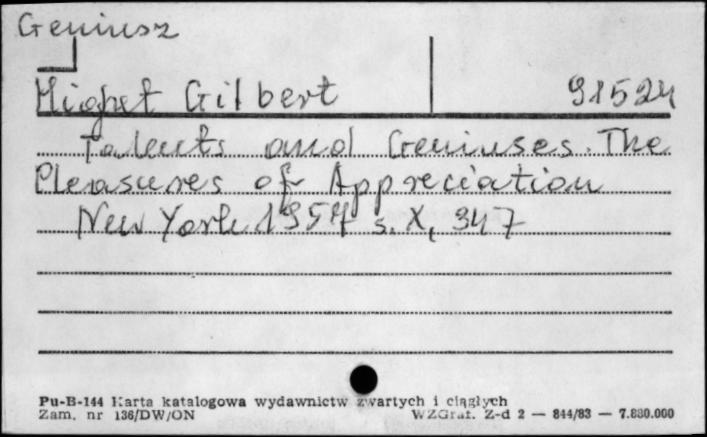 Geniusz
Highet Gilbert 91524
Talents and Geniuses. The
Pleasures of Appreciation
New York 1957 s. X, 347
Pu-B-144 Karta katalogowa wydawnictw zwartych i ciągłych
Zam. nr 136/DW/ON WZGraf. Z-d 2 — 844/83 — 7.880.000